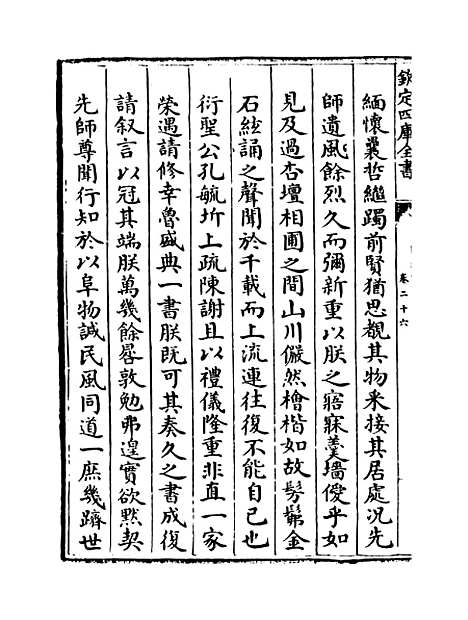 欽定四庫全書
卷二十六
緬懷曩哲繼躅前賢猶思覩其物采接其居處況先
師遺風餘烈久而彌新重以朕之寤寐羹墻僾乎如
見及過杏壇相圃之間山川儼然檜楷如故髣髴金
石絃誦之聲聞於千載而上流連往復不能自已也
衍聖公孔毓圻上疏陳謝且以禮儀隆重非直一家
榮遇請修幸魯盛典一書朕既可其奏久之書成復
請叙言以冠其端朕萬幾餘晷敦勉弗遑實欲黙契
先師尊聞行知於以阜物諴民風同道一庶幾躋世